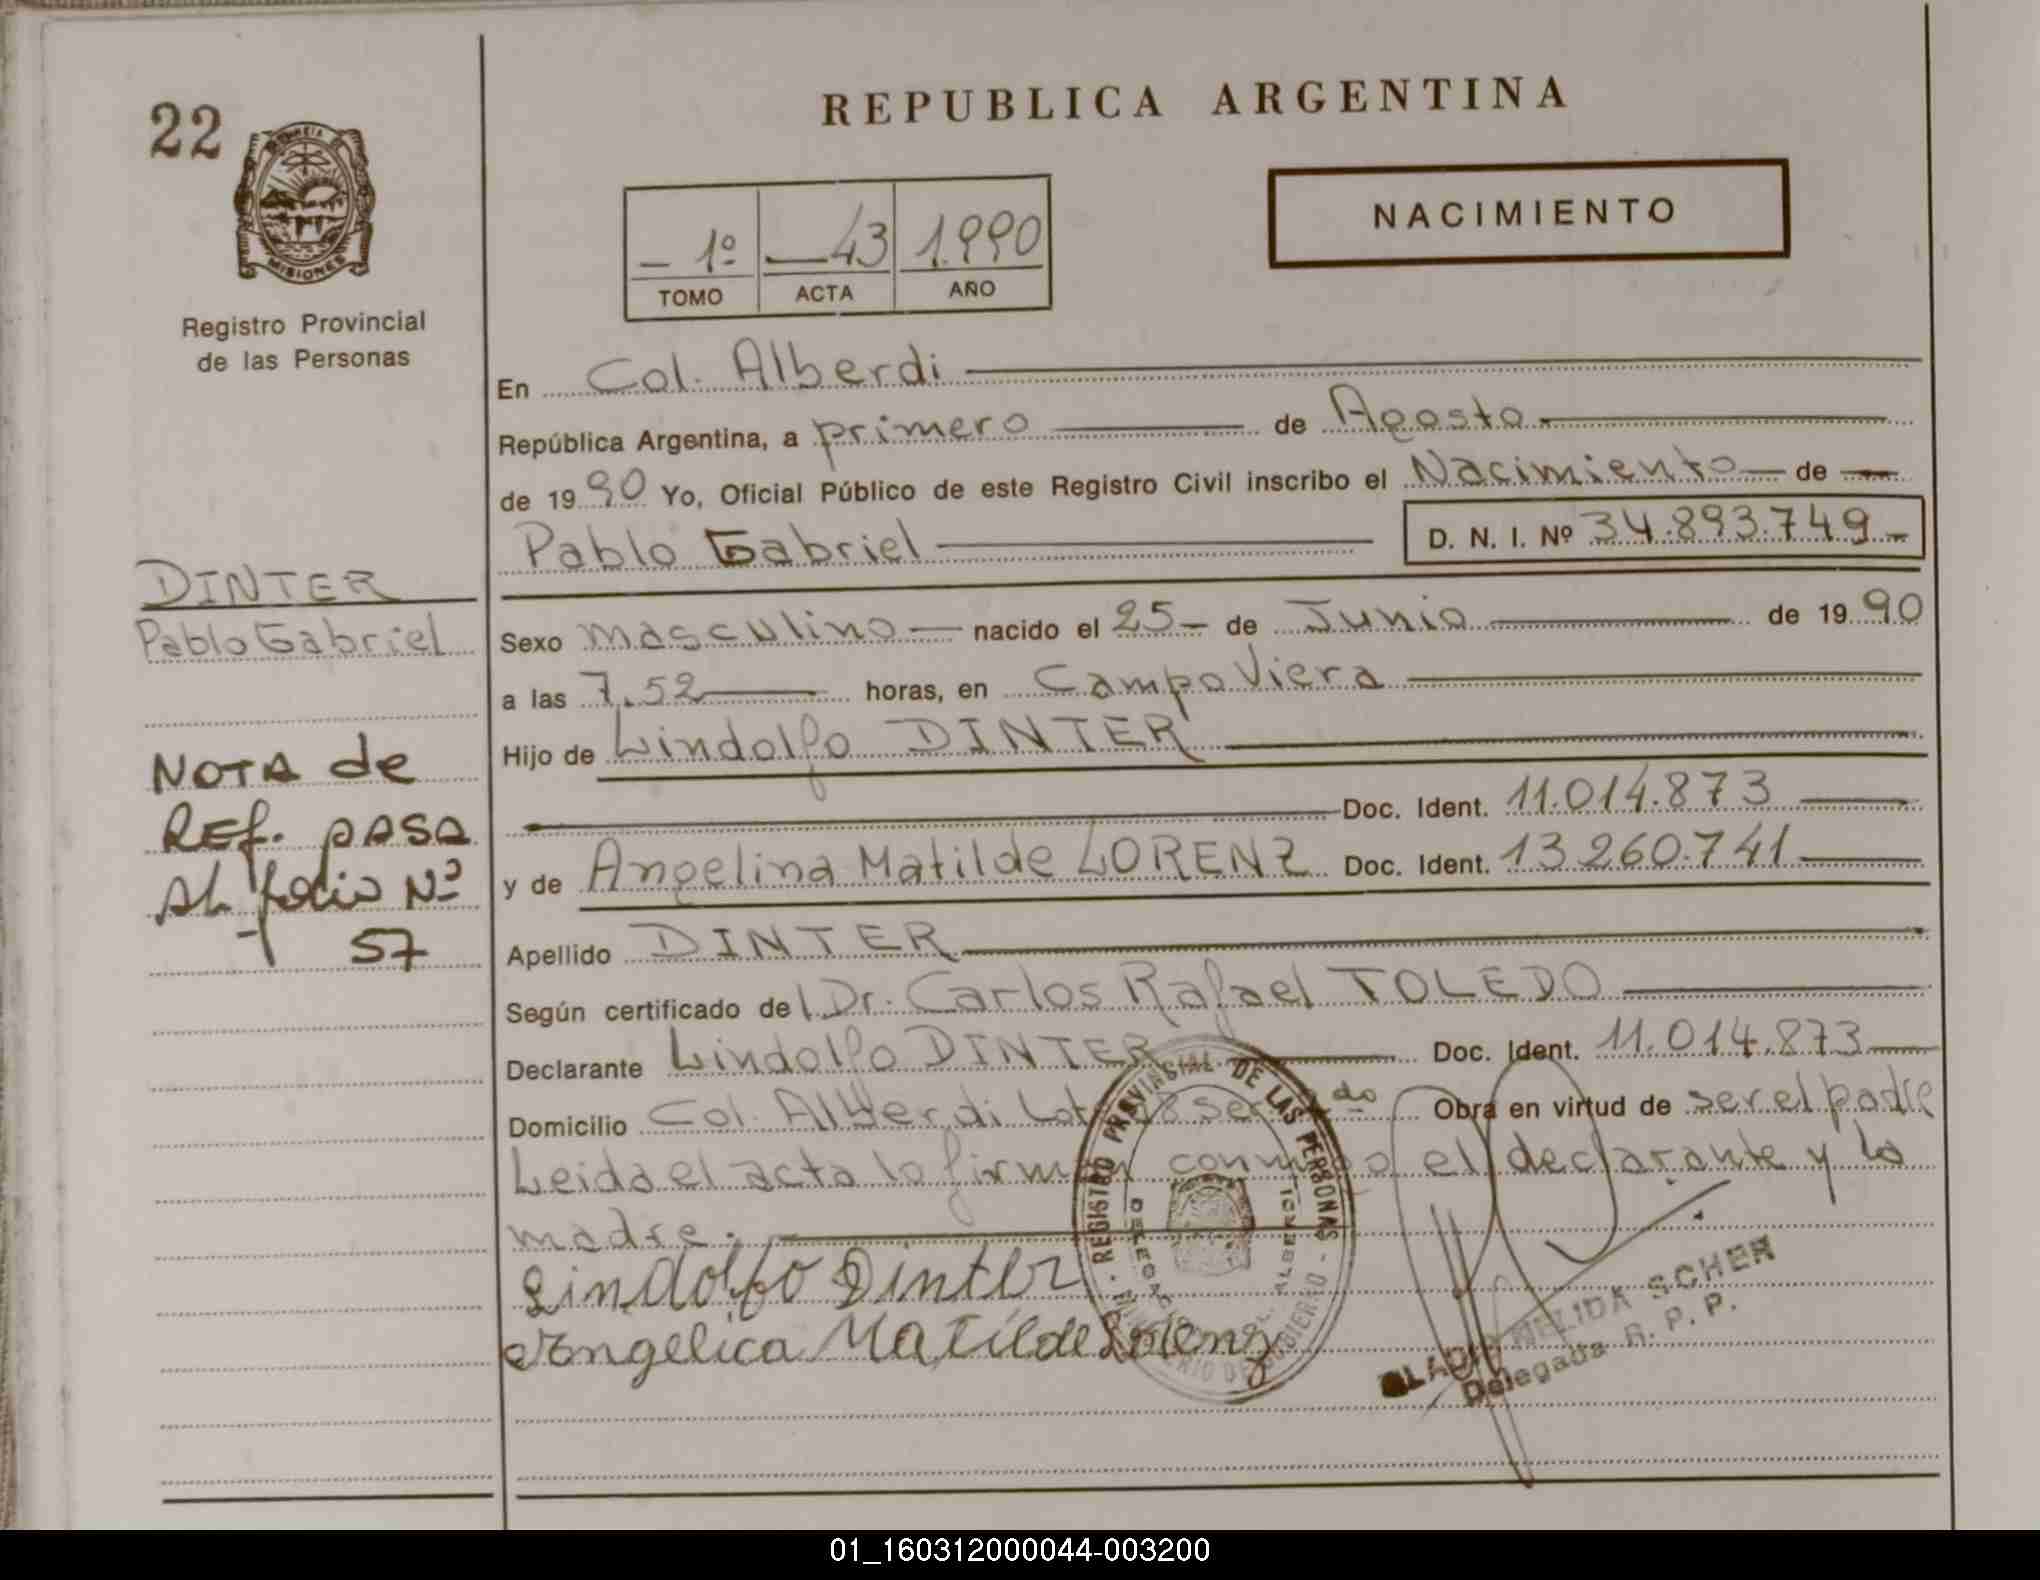 22
PROVINCIA DE
MISIONES
Registro Provincial
de las Personas
DINTER
Pablo Gabriel
NOTA de
REF. PASA
AL folio Nº
57
REPUBLICA ARGENTINA
NACIMIENTO
1º 43 1.990
TOMO ACTA AÑO
En Col. Alberdi
República Argentina, a primero de Agosto
de 1990 Yo, Oficial Público de este Registro Civil inscribo el Nacimiento de
Pablo Gabriel D. N. I. Nº 34.893.749
Sexo masculino nacido el 25 de Junio de 1990
a las 7.52 horas, en Campo Viera
Hijo de Lindolfo DINTER
Doc. Ident. 11.014.873
y de Angelina Matilde LORENZ Doc. Ident. 13.260.741
Apellido DINTER
Según certificado del Dr. Carlos Rafael TOLEDO
Declarante Lindolfo DINTER Doc. Ident. 11.014.873
Domicilio Col. Alberdi Obra en virtud de ser el padre
Leida el acta lo firman conmigo el declarante y la
madre.
Lindolfo Dinter
Angelica Matilde Lorenz
REGISTRO PROVINCIAL DE LAS PERSONAS
MINISTERIO DE GOBIERNO
NELIDA SCHER
Delegada R. P. P.
01_160312000044-003200